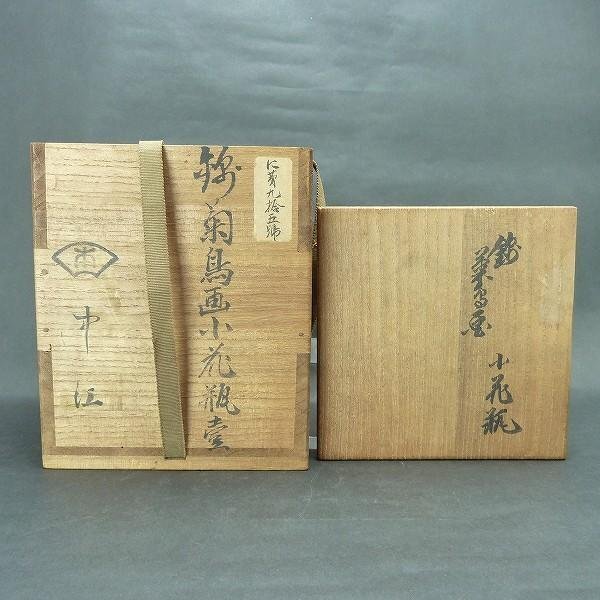 に第九拾五號
錦菊鳥画小花瓶壹
中江
錦
菊鳥画
小花瓶